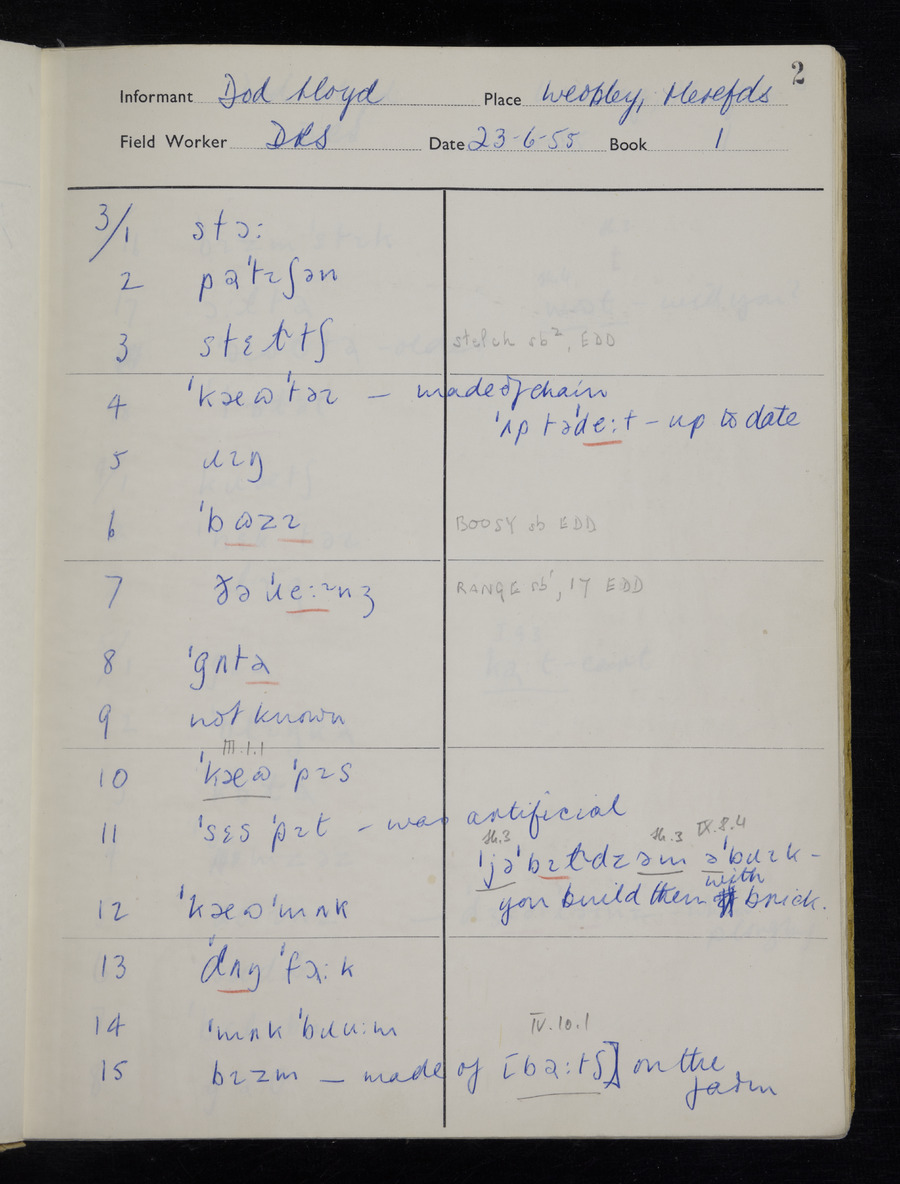 2
Informant Dod Lloyd Place Weobley, Herefds
Field Worker DRS Date 23-6-55 Book 1
3/1 stɔː
2 pəˈtɪʃən
3 stɛltʃ stelch sb², EDD
4 ˈkæʊˈtəɪ — made of chain
ˈʌp təˈdeːt — up to date
5 ɹɪŋ
6 ˈbʊzɪ BOOSY sb EDD
7 ðəˈɹeːɪnʒ RANGE sb¹, 17 EDD
8 ˈgʌtə
9 not known
III.1.1
10 ˈkæʊ ˈpɪs
11 ˈsɛs ˈpɪt — was artificial
sh.3 sh.3 IX.8.4
ˈjəˈbɪldz əm əˈbɹɪk —
12 ˈkæʊˈmʌk you build them with brick.
13 ˈdʌŋ ˈfɔːk
14 ˈmʌk ˈbɹuːm
IV.10.1
15 bɪzm — made of [bəːtʃ] on the
farm